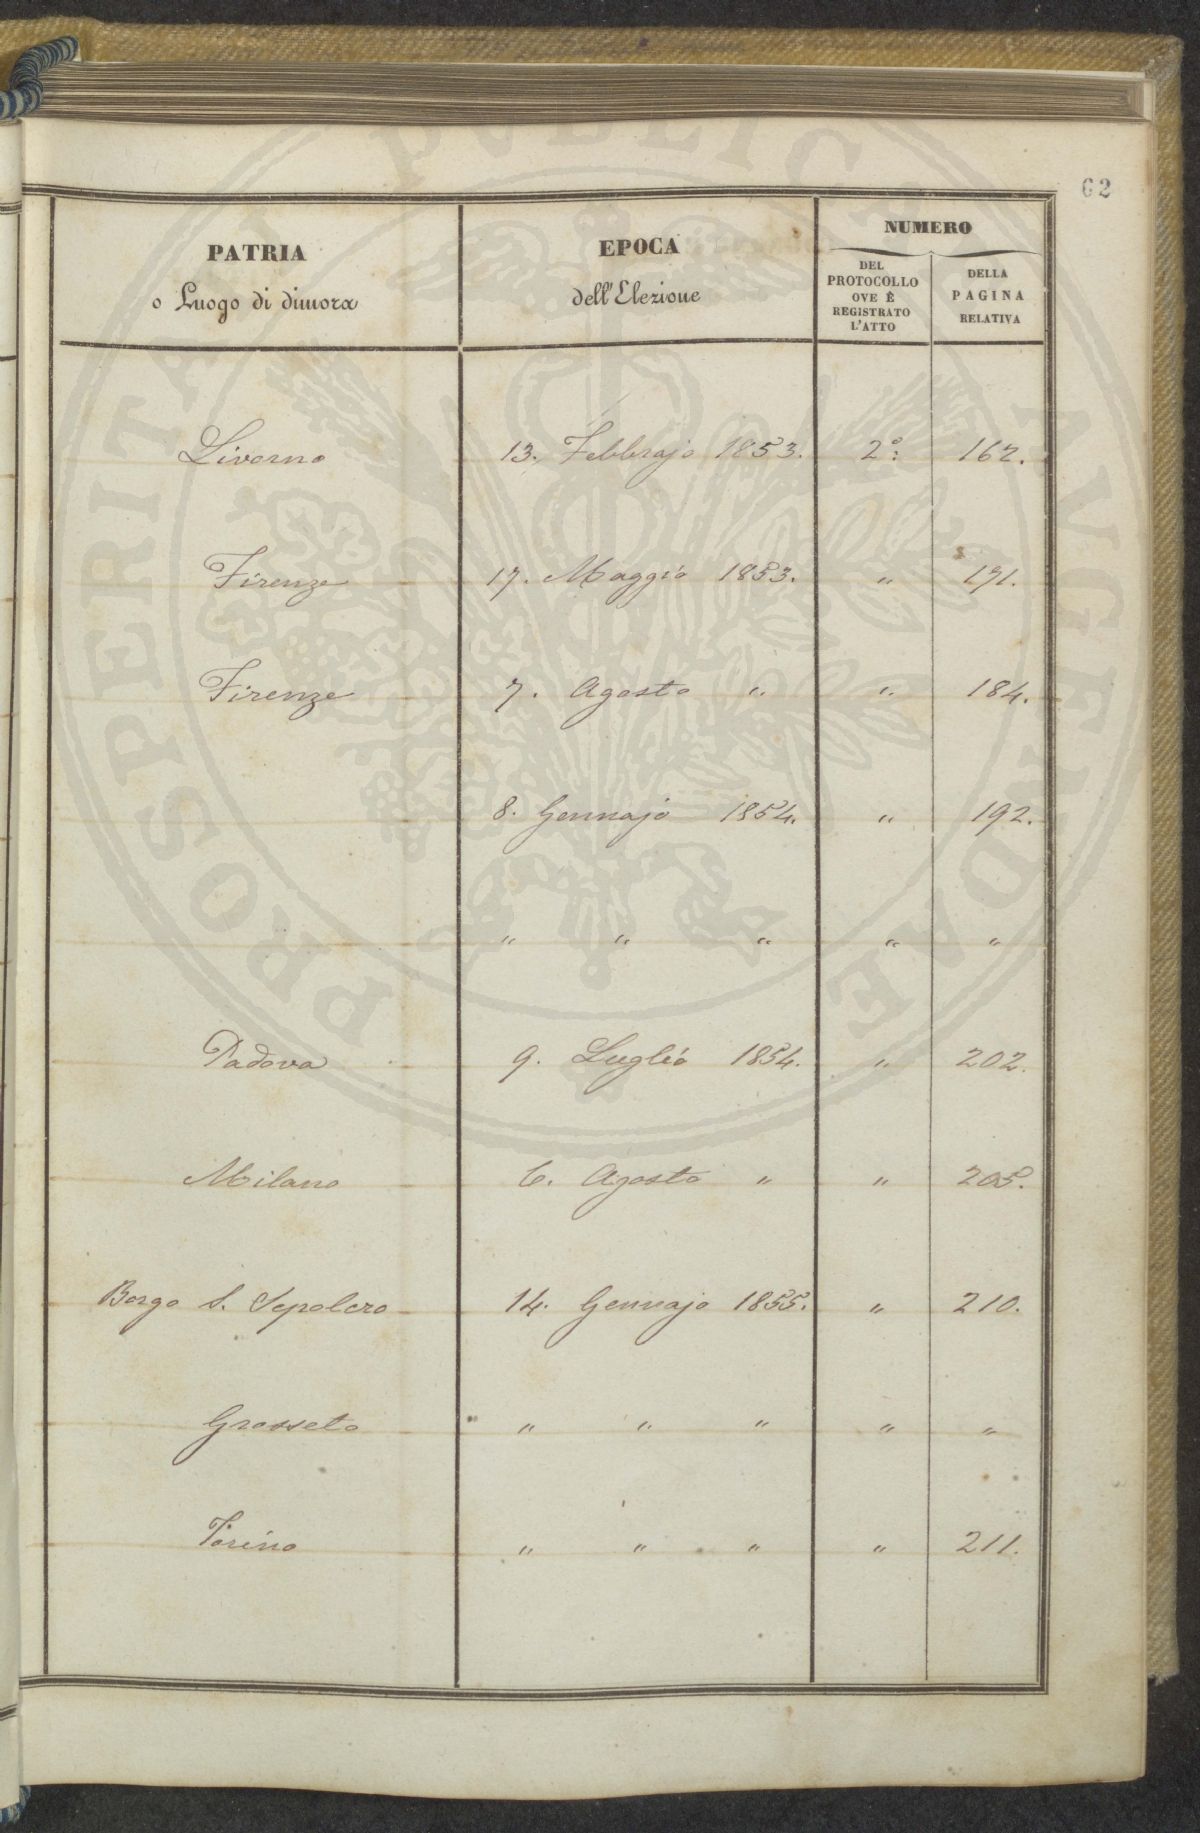 62
PATRIA
o Luogo di dimora
EPOCA
dell'Elezione
NUMERO
DEL
PROTOCOLLO
OVE È
REGISTRATO
L'ATTO
DELLA
PAGINA
RELATIVA
Livorno 13. Febbrajo 1853. 2°: 162.
Firenze 17. Maggio 1853. " 171.
Firenze 7. Agosto " " 184.
8. Gennajo 1854. " 192.
" " " " "
Padova 9. Luglio 1854. " 202.
Milano 6. Agosto " " 205.
Borgo S. Sepolcro 14. Gennajo 1855. " 210.
Grosseto " " " " "
Torino " " " " 211.
PROSPERITATI PVBLICAE AVGENDAE